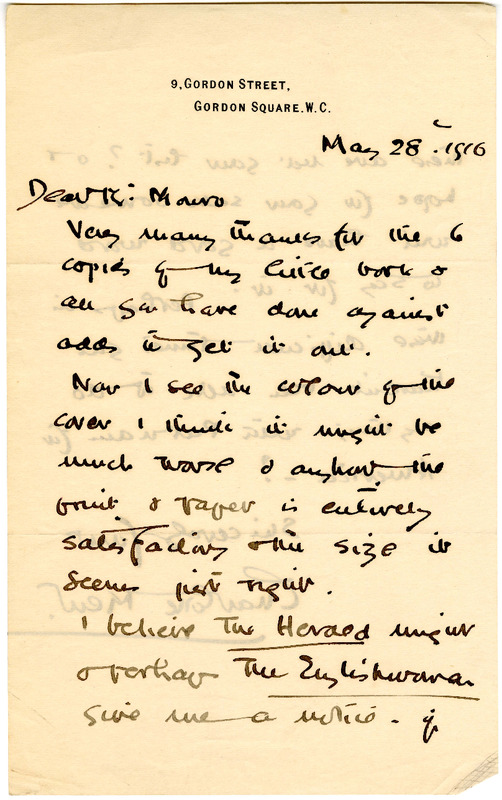 9, GORDON STREET,
GORDON SQUARE. W.C.
May 28th. 1916
Dear Mr. Monro
Very many thanks for the 6
copies of my little book &
all you have done against
odds to get it out.
Now I see the colour of the
cover I think it might be
much worse & anyhow the
print & paper is entirely
satisfactory & the size it
seems just right.
I believe The Herald might
& perhaps The Englishwoman
give me a notice - if